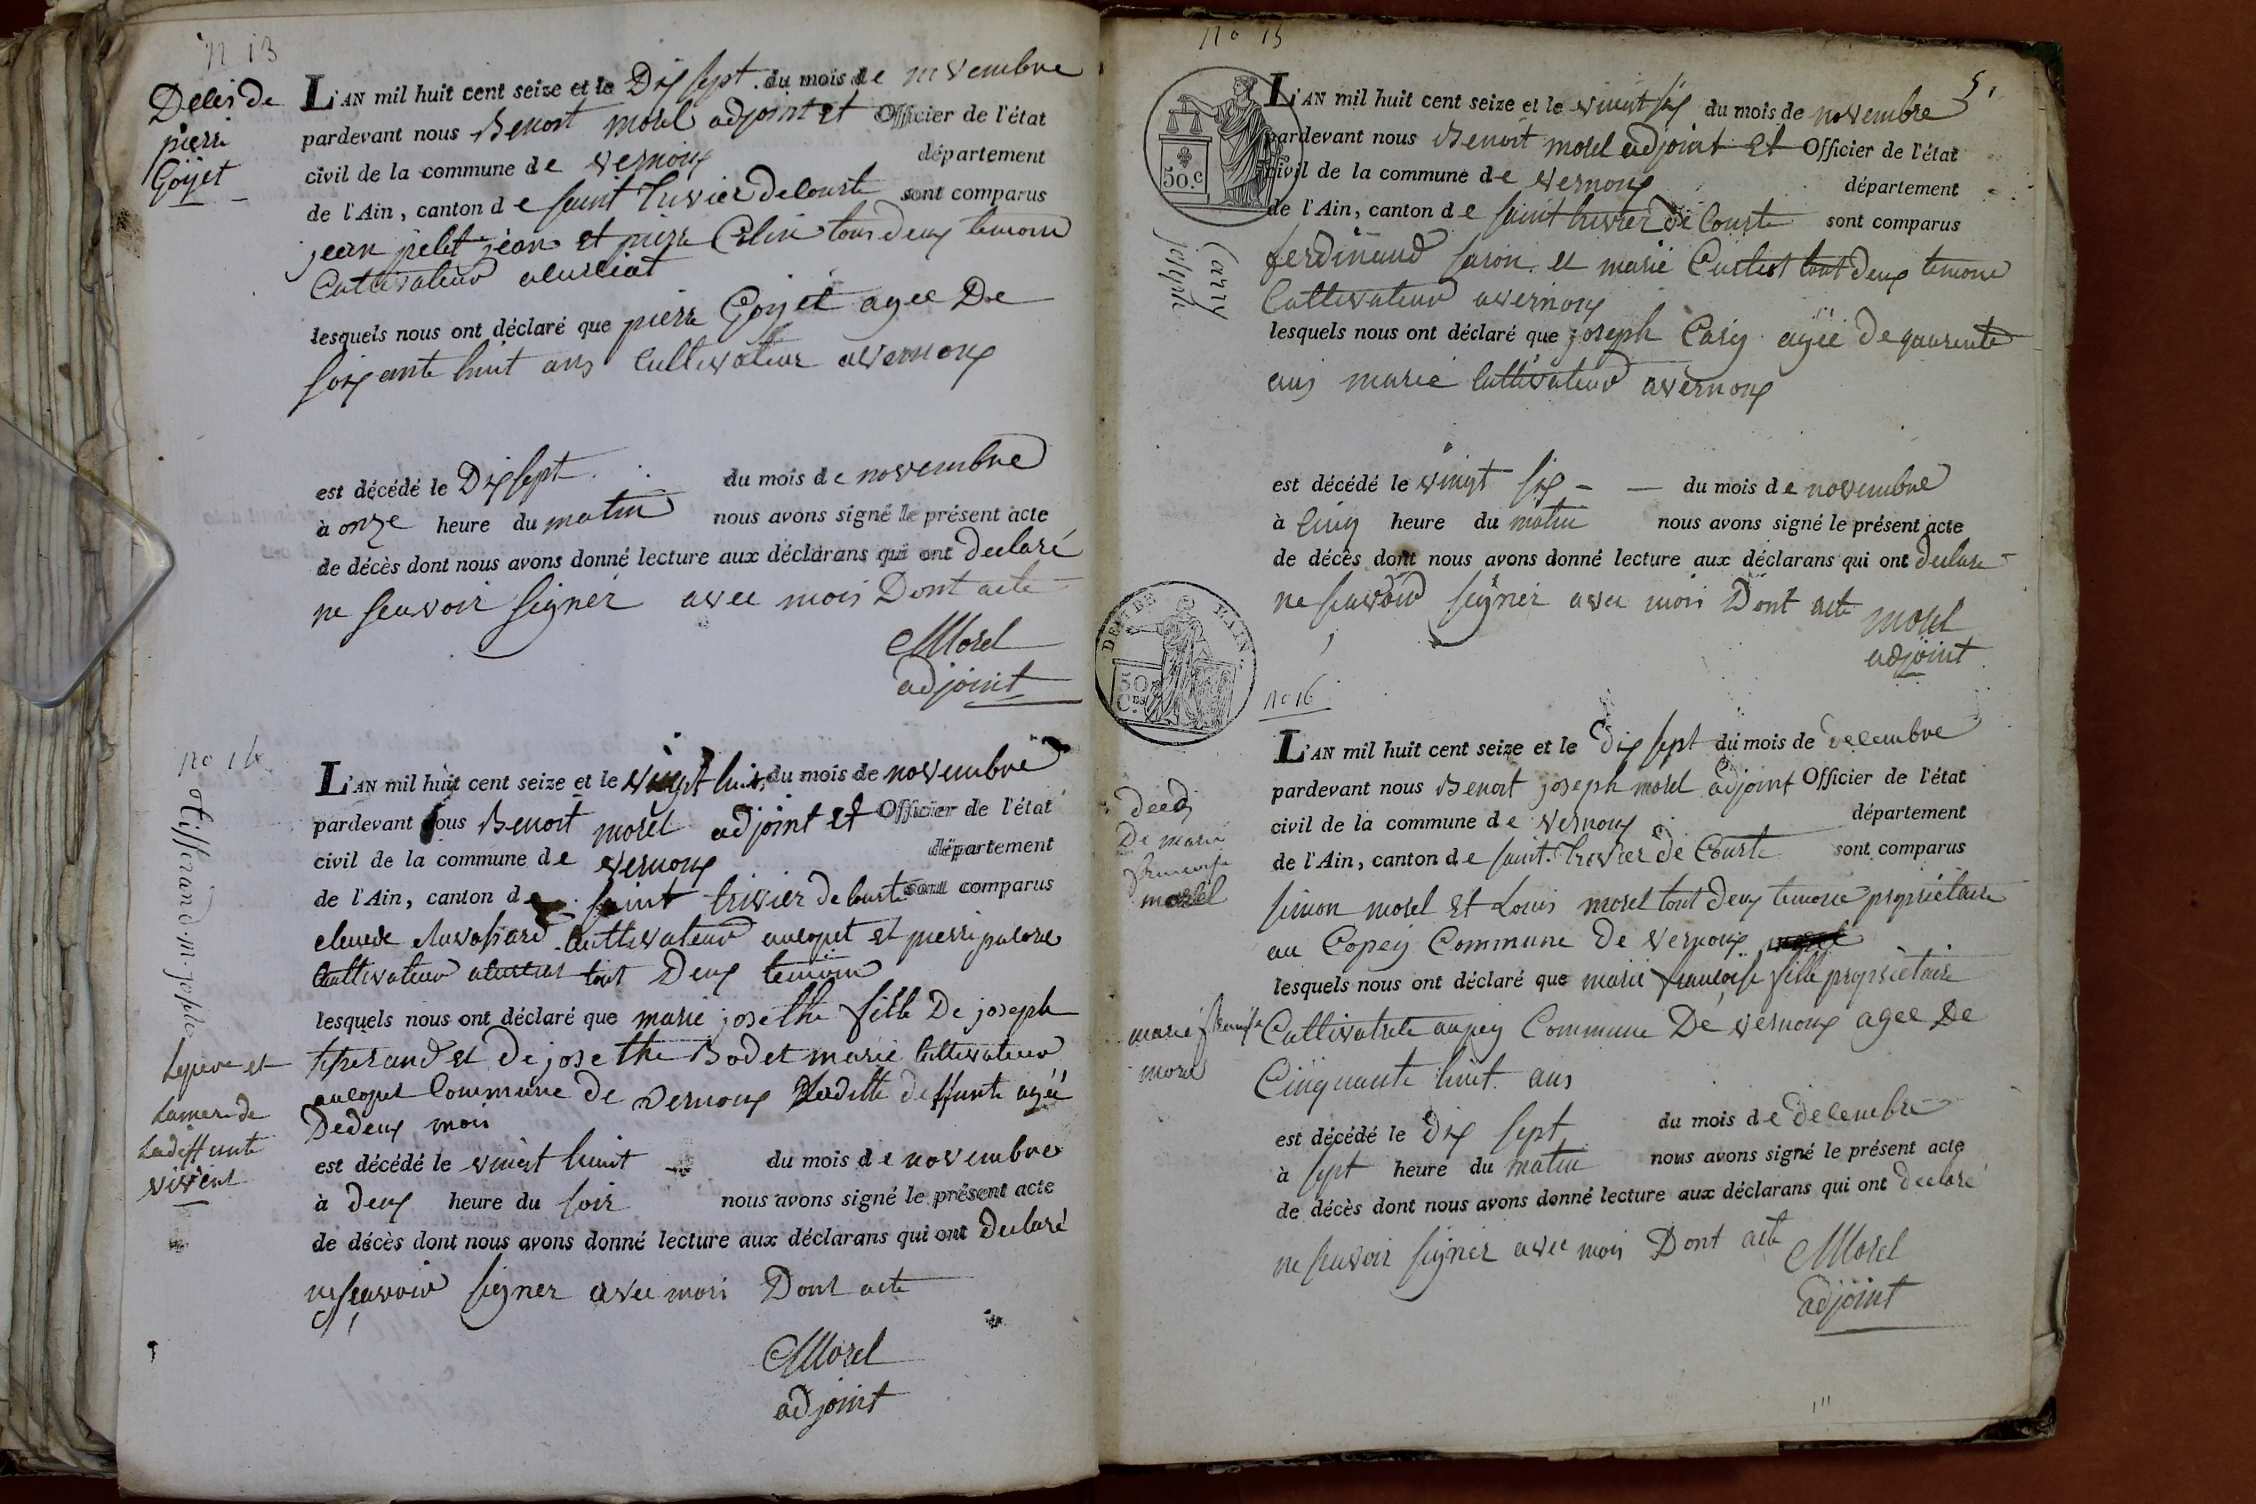 n 13
Deces de
pierre
Goÿet
L'AN mil huit cent seize et le Dix sept du mois de novembre
pardevant nous Benoit morel adjoint et Officier de l'état
civil de la commune de vernoux département
de l'Ain, canton de saint trivier decourte sont comparus
jean petit jean et pierre Colin tous deux temoin
Cultivateur acurciat
lesquels nous ont déclaré que pierre Goÿet agee De
soixante huit ans Cultivateur avernoux
est décédé le Dix sept du mois de novembre
à onze heure du matin nous avons signé le présent acte
de décès dont nous avons donné lecture aux déclarans qui ont declaré
ne scavoir signer avec moi Dont acte
Morel
adjoint
no 14
tifferand m josephe
L'AN mil huit cent seize et le vingt huit du mois de novembre
pardevant nous Benoit morel adjoint et Officier de l'état
civil de la commune de vernoux département
de l'Ain, canton de saint trivier de courte sont comparus
claude Cultivateur et pierre
Cultivateur acurciat tout Deux temoin
lesquels nous ont déclaré que marie josethe fille De joseph
tifferand et De josethe Bodet marié Cultivateur
Commune de vernoux Ladite deffunte agéé
Dedeux mois
Lepere et
Lamere de
Ladeffunte
vivent
est décédé le vingt huit du mois de novembre
à deux heure du soir nous avons signé le présent acte
de décès dont nous avons donné lecture aux déclarans qui ont declaré
ne scavoir signer avec moi Dont acte
Morel
adjoint
no 15
5.
50.c
Cariy
joseph
L'AN mil huit cent seize et le vingt six du mois de novembre
pardevant nous Benoit morel adjoint Et Officier de l'état
civil de la commune de vernoux département
de l'Ain, canton de saint trivier de Courte sont comparus
ferdinand et marie tout deux temoin
Cultivateur avernoux
lesquels nous ont déclaré que joseph Cariy agée De quarente
ans marié Cultivateur avernoux
est décédé le vingt six du mois de novembre
à Cinq heure du matin nous avons signé le présent acte
de décès dont nous avons donné lecture aux déclarans qui ont declare
ne scavoir signer avec moi Dont acte morel
adjoint
DEPT DE L'AIN.
50 Ces
no 16
Deces
De marie
francoise
morel
L'AN mil huit cent seize et le dix sept du mois de decembre
pardevant nous Benoit joseph morel adjoint Officier de l'état
civil de la commune de vernoux département
de l'Ain, canton de saint trivier de Courte sont comparus
simon morel Et Louis morel tout deux temoin proprietaire
au Copey Commune De vernoux
lesquels nous ont déclaré que marie francoise fille proprietaire
marie francoise
morel
Cultivatrice Commune De vernoux agee De
Cinquante huit ans
est décédé le dix sept du mois de decembre
à sept heure du matin nous avons signé le présent acte
de décès dont nous avons donné lecture aux déclarans qui ont declaré
ne scavoir signer avec moi Dont acte Morel
adjoint